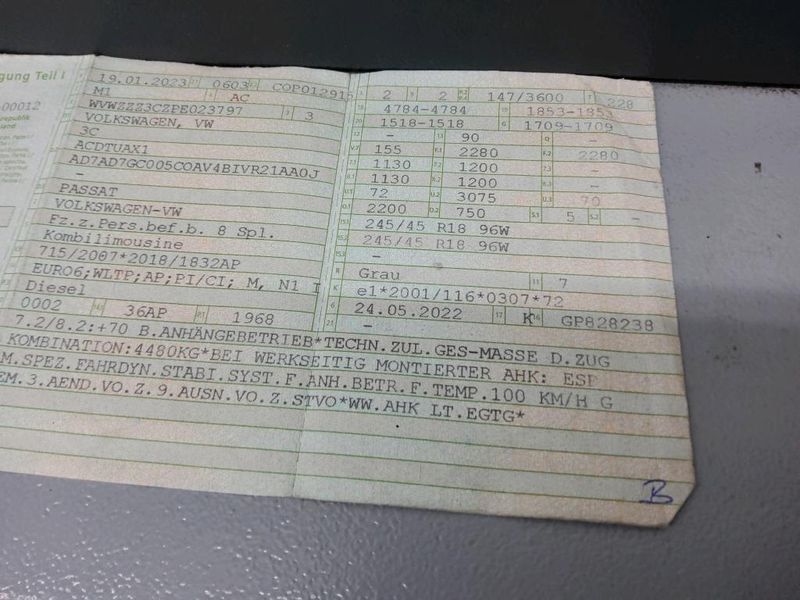 gung Teil I
00012
19.01.2023 0603 COP012915
M1 AC
WVWZZZ3CZPE023797 3
VOLKSWAGEN, VW
3C
ACDTUAX1
AD7AD7GC005COAV4BIVR21AA0J
-
PASSAT
VOLKSWAGEN-VW
Fz.z.Pers.bef.b. 8 Spl.
Kombilimousine
715/2007*2018/1832AP
EURO6;WLTP;AP;PI/CI; M, N1 I
Diesel
0002 36AP 1968
2 2 147/3600 228
4784-4784 1853-1853
1518-1518 1709-1709
- 90 -
155 2280 2280
1130 1200 -
1130 1200 -
72 3075 70
2200 750 5 -
245/45 R18 96W
245/45 R18 96W
-
Grau 7
e1*2001/116*0307*72
24.05.2022 K GP828238
-
7.2/8.2:+70 B.ANHÄNGEBETRIEB*TECHN.ZUL.GES-MASSE D.ZUG
KOMBINATION:4480KG*BEI WERKSEITIG MONTIERTER AHK: ESP
M.SPEZ.FAHRDYN.STABI.SYST.F.ANH.BETR.F.TEMP.100 KM/H G
EM.3.AEND.VO.Z.9.AUSN.VO.Z.STVO*WW.AHK LT.EGTG*
B